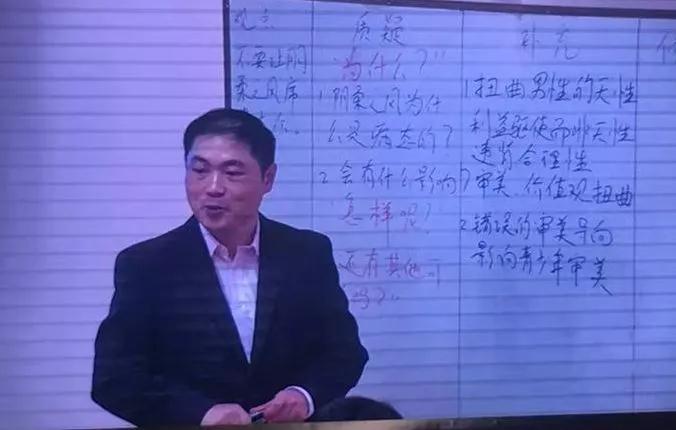 观点
不要让阴
柔之风席
质疑
"为什么?"
1.阴柔之风为什
么是病态的?
2.会有什么影响?
怎样呢?
还有其他可
吗?"
补充
1.扭曲男性的天性
利益驱使而非天性
违背合理性
审美、价值观扭曲
2.错误的审美导向
影响青少年审美